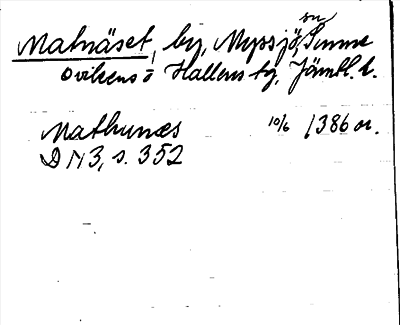 Matnäset, by, Myssjö sn, Sunne
Ovikens o Hallens tg, Jämtl. l.
Mathunæs 10/6 1386 or.
DN 3, s. 352